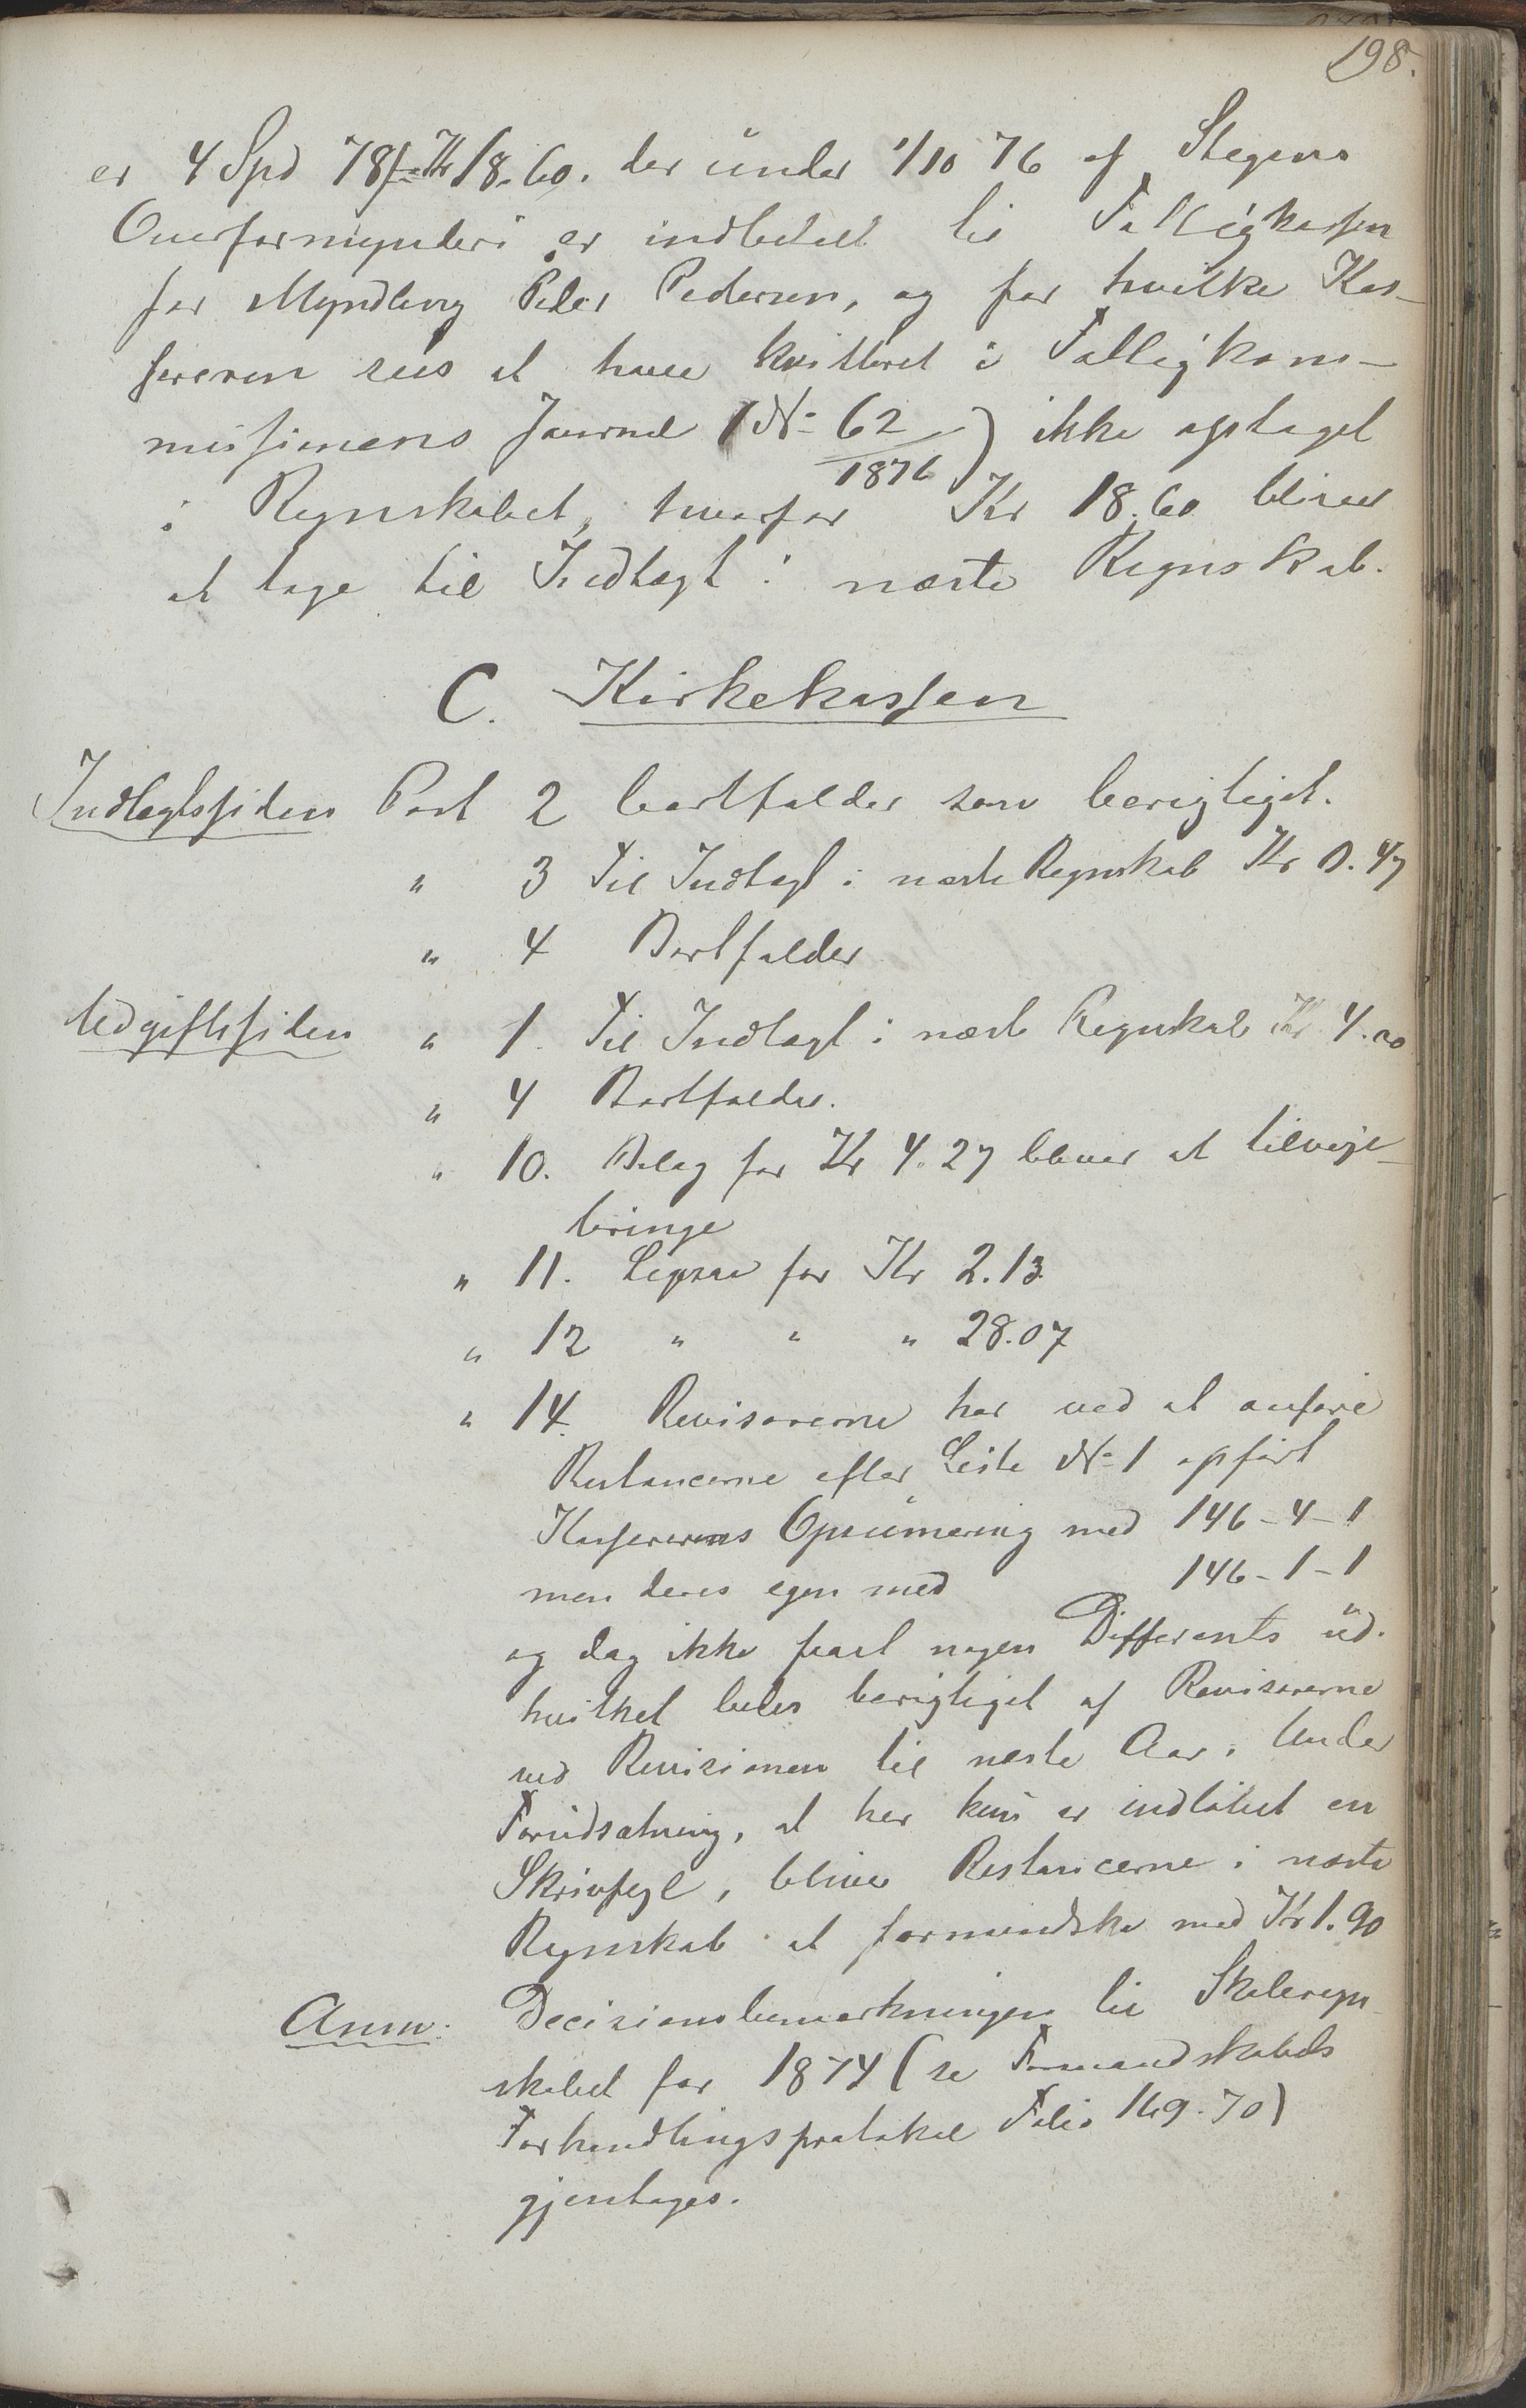 198.
er 4 Spd 78 f = Kr 18.60. der under 1/10 76 af Stegens
Overformynderi er indbetalt til Fattigkassen
for Myndling Peder Pedersen, og for hvilke Kas-
sereren sees at have kvitteret i Fattigkom-
missionens Journal (No 62/1876) ikke optaget
i Regnskabet, hvorfor Kr 18.60 bliver
at tage til Indtægt i næste Regnskab.
C. Kirkekassen
Indtægtssiden Post 2 bortfalder som berigtiget.
" 3 Til Indtægt i næste Regnskab Kr 0.47
" 4 Bortfalder
Udgiftssiden " 1. Til Indtægt i næste Regnskab Kr 4.00
" 4 Bortfalder.
" 10. Bilag for Kr 4.27 bliver at tilveje-
bringe
" 11. Ligesaa for Kr 2.13
" 12 " " " 28.07
" 14. Revisorerne har ved at anføre
Restancerne efter Liste No 1 opført
Kassererens Opsumering med 146-4-1
men deres egen med 146-1-1
og dog ikke faaet nogen Differents ud.
hvilket bedes berigtiget af Revisorerne
ved Revisionen til næste Aar. Under
Forudsætning, at her kun er indløbet en
Skrivfeyl, bliver Restancerne i næste
Regnskab at formindske med Kr 1.90
Anm: Decisionsbemærkningen til Skoleregn-
skabet for 1874 (se Formandskabets
Forhandlingsprotokol Folio 169-70)
gjentages.